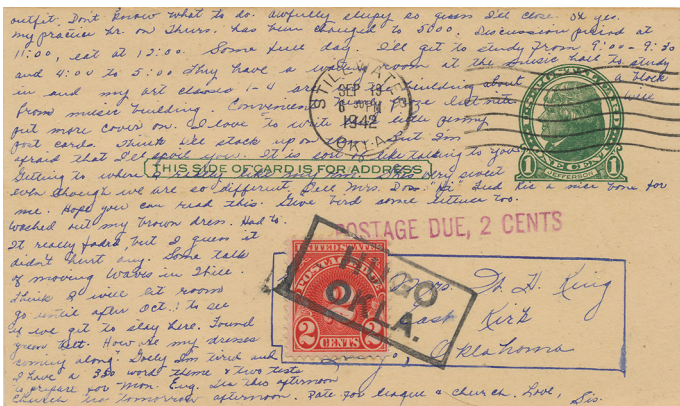 outfit. Don't know what to do. Awfully sleepy so guess I'll close. Oh yes.
my practice hr. on Thurs. has been changed to 5:00. Discussion period at
11:00, eat at 12:00. Some full day. I'll get to study from 9:00-9:30
and 4:00 to 5:00 They have a waiting room at the music hall to study
in and my art classes 1-4 are in a building about a block
from music building. Convenient. will
put more covers on. I love to write penny
post cards. Think I'll stock up on But I'm
afraid that I'll spoil you. It is sort of like talking to you
Getting to where I very sweet
even though we are so different. Tell Mrs. Dora "Hi" Feed Ric a nice bone for
me. Hope you can read this. Give bird some lettuce too.
Washed out my brown dress. Had to.
It really faded, but I guess it
didn't hurt any. Some talk
of moving Waves in here.
Think I will let room
go until after Oct. 1 to see
if we get to stay here. Found
green belt. How are my dresses
coming along? Golly I'm tired and
I have a 350 word theme & two tests
to prepare for Mon. Eng. this afternoon
Church tomorrow afternoon. league & church. Love, Sis.
STILLWATER
SEP 19
PM
1942
OKLA.
UNITED STATES POSTAL CARD
1 ONE CENT 1
JEFFERSON
THIS SIDE OF CARD IS FOR ADDRESS
POSTAGE DUE, 2 CENTS
UNITED STATES
POSTAGE DUE
2 CENTS 2
HUGO
OKLA.
Mrs. W. H. King
East Kirk
Hugo, Oklahoma